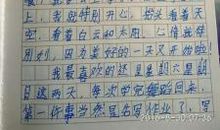 上，我就特别开心，抬头看着天
空，看着白云和太阳，心情就特
别好，因为美好的一天又开始啦！
我最喜欢的还是星期六星期
日这两天，每次中午完 回来，
第一件事当然是先写作业了，写